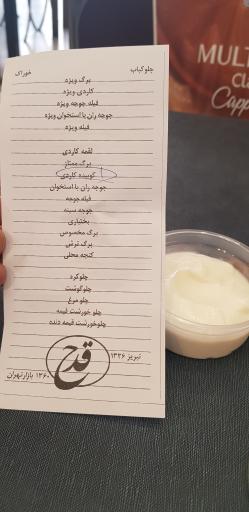 چلوکباب خوراک
برگ ویژه
کاردی ویژه
فیله جوجه ویژه
جوجه ران با استخوان ویژه
فیله ویژه
لقمه کاردی
برگ ممتاز
کوبیده کاردی
جوجه ران با استخوان
فیله جوجه
جوجه سینه
بختیاری
برگ مخصوص
کنجه محلی
چلوکره
چلوگوشت
چلو مرغ
چلو خورشت قیمه
چلوخورشت قیمه دنده
قدح
تبریز ۱۳۲۶
۱۳۶۰ بازار تهران
MUL
Capp